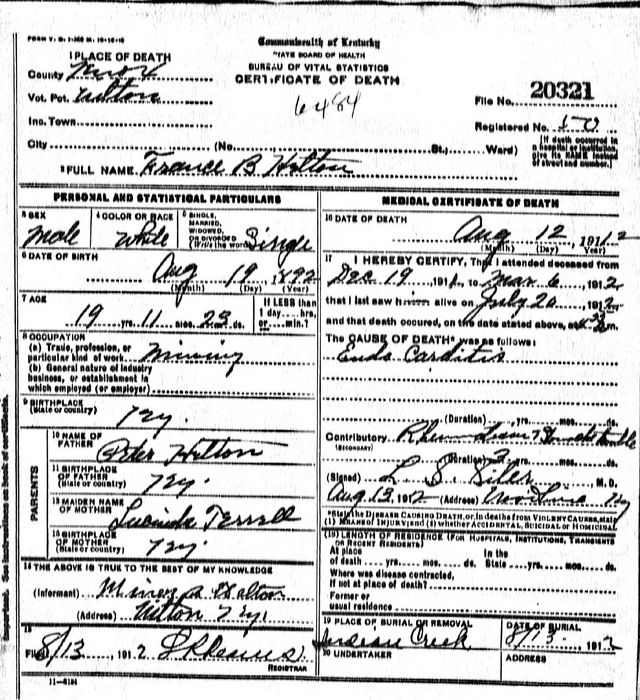 FORM V. S. 1-
Commonwealth of Kentucky
STATE BOARD OF HEALTH
BUREAU OF VITAL STATISTICS
CERTIFICATE OF DEATH
1 PLACE OF DEATH
County Knox
Vot. Pct.
Inc. Town
City (No. St.; Ward)
6484
File No. 20321
Registered No.
[If death occurred in a hospital or institution, give its NAME instead of street and number.]
2 FULL NAME France B Hilton
PERSONAL AND STATISTICAL PARTICULARS
3 SEX
Male
4 COLOR OR RACE
White
5 SINGLE, MARRIED, WIDOWED, OR DIVORCED (Write the word)
Single
6 DATE OF BIRTH
Aug 19, 1892
(Month) (Day) (Year)
7 AGE
19 yrs. 11 mos. 23 ds.
If LESS than 1 day....hrs. or....min.?
8 OCCUPATION
(a) Trade, profession, or particular kind of work mining
(b) General nature of industry
business, or establishment in
which employed (or employer)
9 BIRTHPLACE
(State or country) Ky.
PARENTS
10 NAME OF FATHER
Peter Hilton
11 BIRTHPLACE OF FATHER
(State or country) Ky.
12 MAIDEN NAME OF MOTHER
Lucinda Terrell
13 BIRTHPLACE OF MOTHER
(State or country) Ky.
14 THE ABOVE IS TRUE TO THE BEST OF MY KNOWLEDGE
(Informant)
(Address) Ky.
15
Filed 8/13, 1912
REGISTRAR
11-5184
MEDICAL CERTIFICATE OF DEATH
16 DATE OF DEATH
Aug 12, 1912
(Month) (Day) (Year)
17 I HEREBY CERTIFY, That I attended deceased from
Dec 19 1911, to Mar 6, 1912
that I last saw him alive on July 20, 1912
and that death occured, on the date stated above, at m.
The CAUSE OF DEATH* was as follows:
Endo Carditis
(Duration) yrs. mos. ds.
Contributory
(SECONDARY)
(Duration) yrs. mos. ds.
(Signed) L. S. Siler M. D.
Aug 13, 1912 (Address) Ky
*State the DISEASE CAUSING DEATH, or, in deaths from VIOLENT CAUSES, state
(1) MEANS OF INJURY; and (2) whether ACCIDENTAL, SUICIDAL or HOMICIDAL
(18) LENGTH OF RESIDENCE (FOR HOSPITALS, INSTITUTIONS, TRANSIENTS
OR RECENT RESIDENTS)
At place of death yrs. mos. ds. In the State yrs. mos. ds.
Where was disease contracted,
If not at place of death?
Former or
usual residence
19 PLACE OF BURIAL OR REMOVAL
Indian Creek
DATE OF BURIAL
8/13. 1912
20 UNDERTAKER
ADDRESS
Important. See instructions on back of certificate.